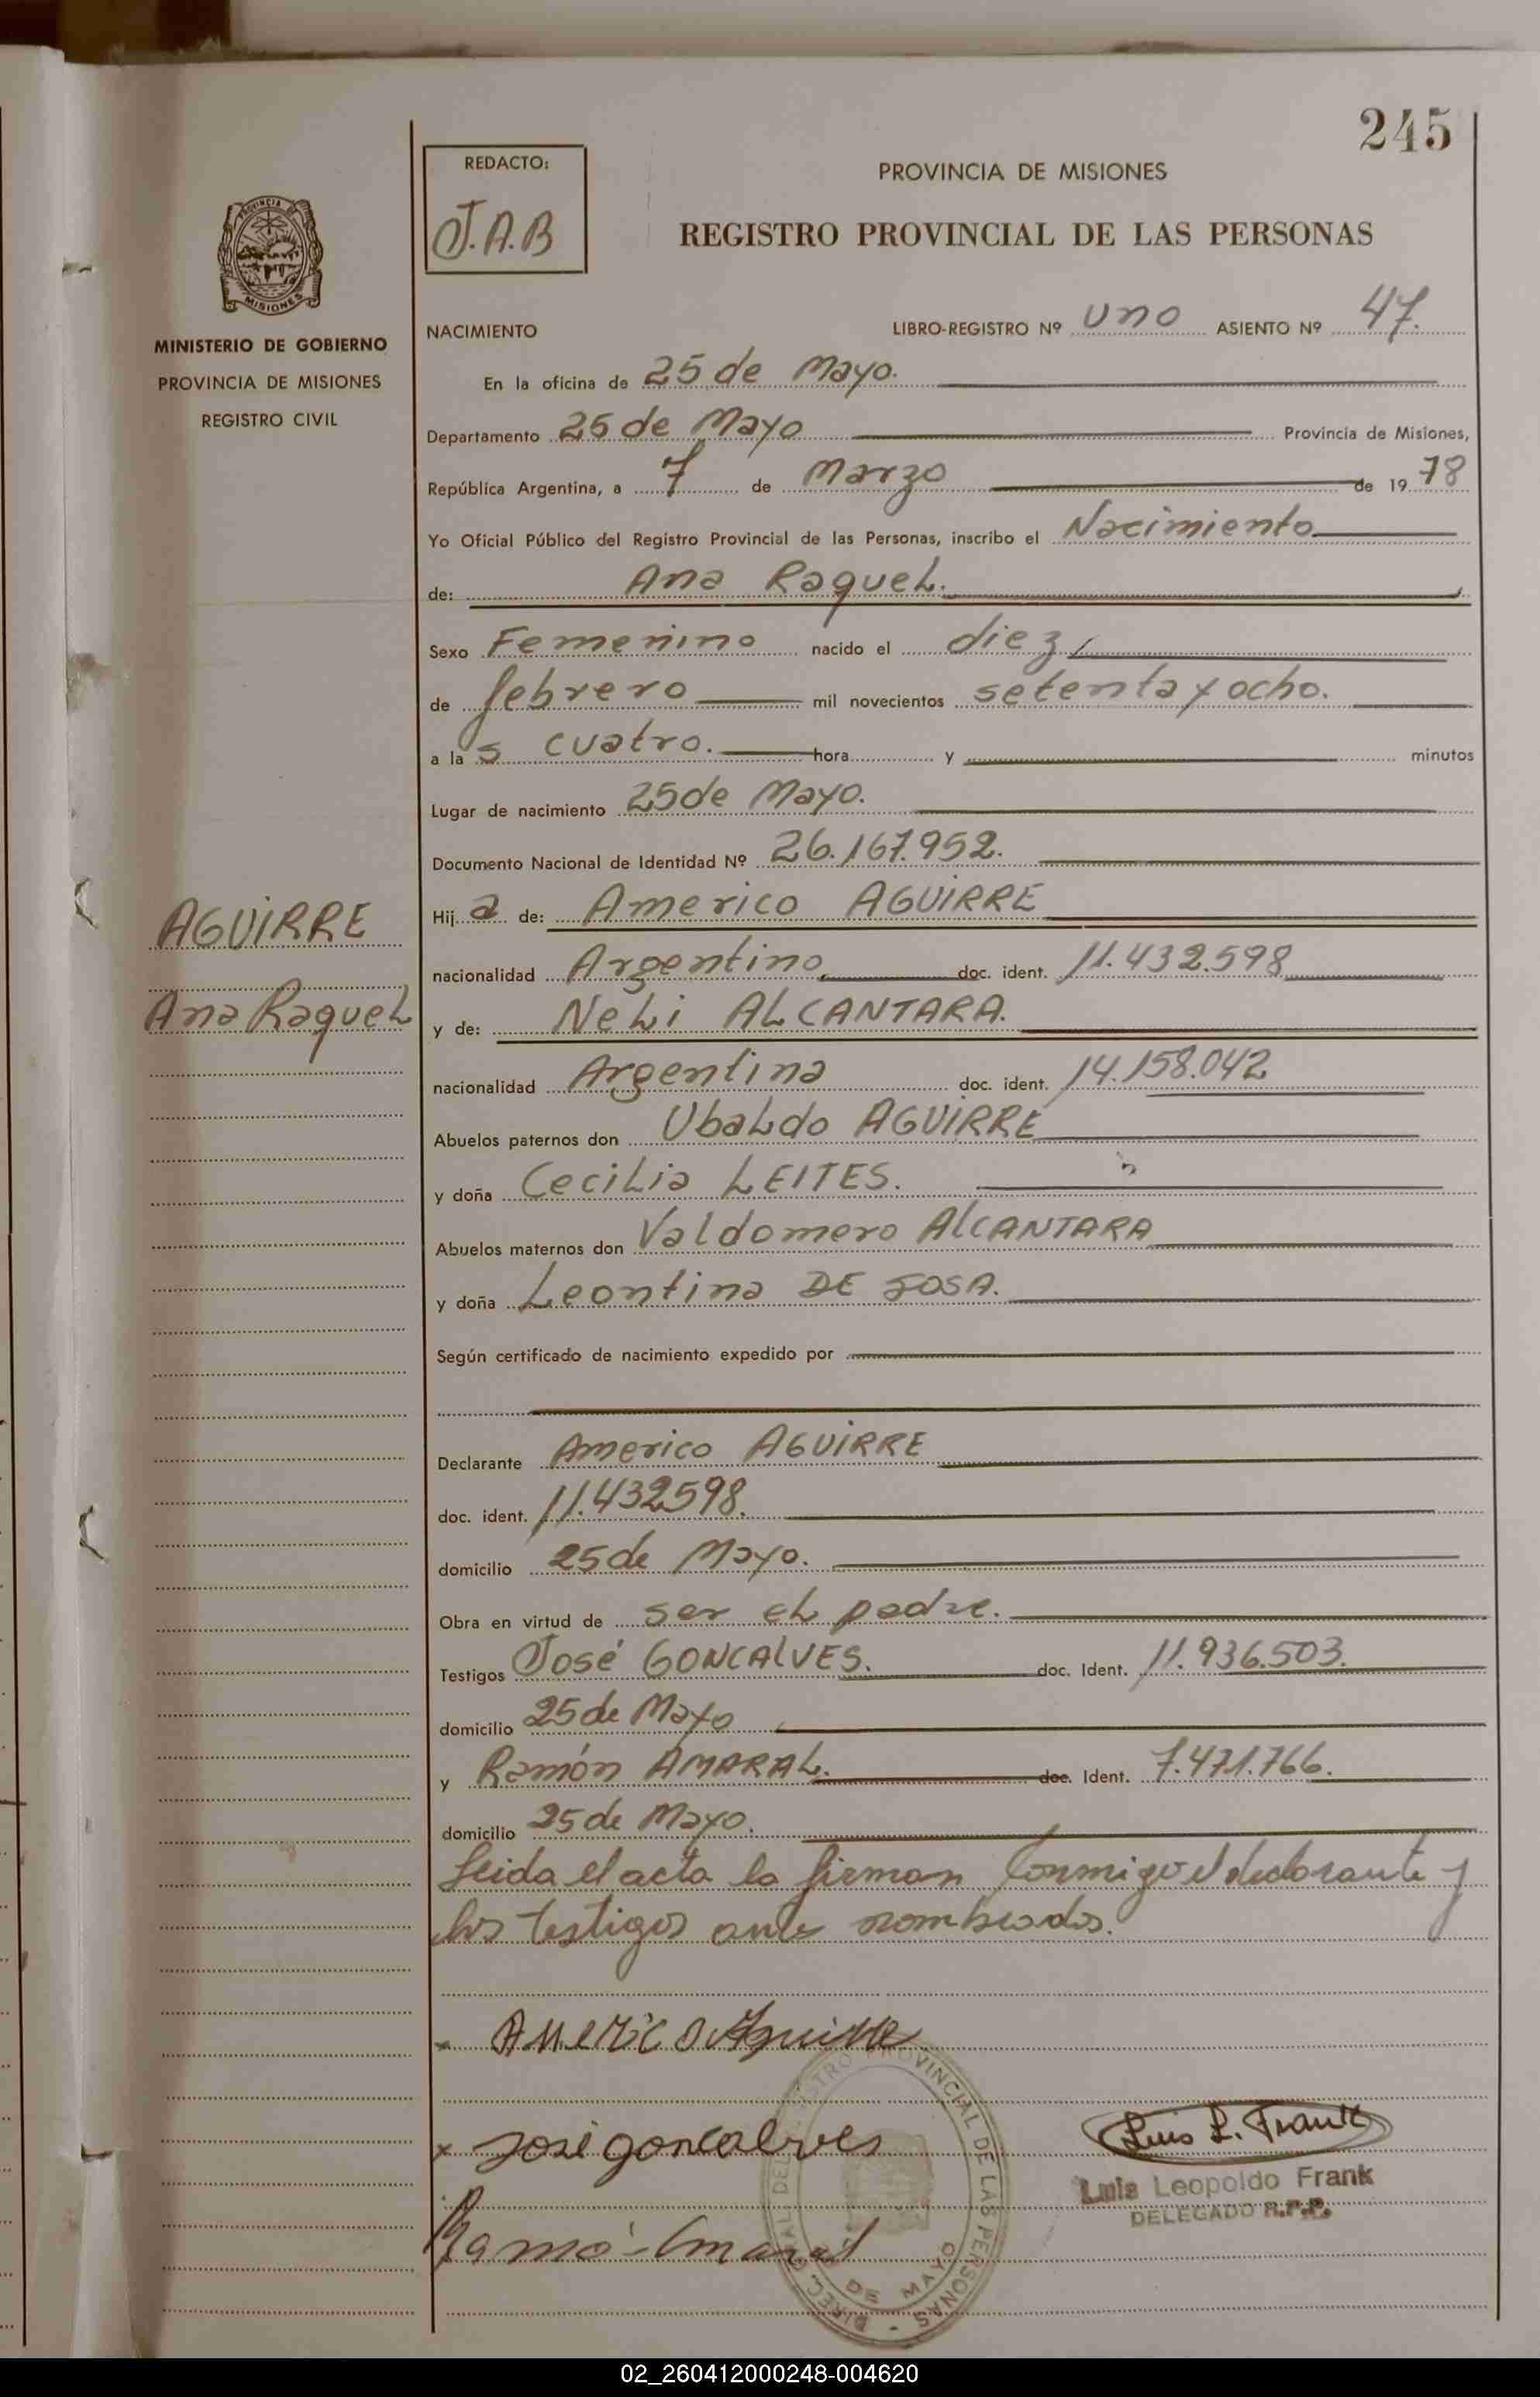 245
REDACTO:
J.A.B
PROVINCIA DE MISIONES
REGISTRO PROVINCIAL DE LAS PERSONAS
PROVINCIA DE
MISIONES
MINISTERIO DE GOBIERNO
PROVINCIA DE MISIONES
REGISTRO CIVIL
NACIMIENTO LIBRO-REGISTRO Nº uno ASIENTO Nº 47.
En la oficina de 25 de Mayo.
Departamento 25 de Mayo Provincia de Misiones,
República Argentina, a 7 de Marzo de 19 78
Yo Oficial Público del Registro Provincial de las Personas, inscribo el Nacimiento
de: Ana Raquel.
Sexo Femenino nacido el diez
de febrero mil novecientos setenta y ocho.
a las cuatro. hora y minutos
Lugar de nacimiento 25 de Mayo.
Documento Nacional de Identidad Nº 26.167.952.
AGUIRRE
Ana Raquel
Hija de: Americo AGUIRRE
nacionalidad Argentino, doc. ident. 11.432.598
y de: Neli ALCANTARA.
nacionalidad Argentina doc. ident. 14.158.042
Abuelos paternos don Ubaldo AGUIRRE
y doña Cecilia LEITES.
Abuelos maternos don Valdomero ALCANTARA
y doña Leontina DE SOSA.
Según certificado de nacimiento expedido por
Declarante Americo AGUIRRE
doc. ident. 11.432598.
domicilio 25 de Mayo.
Obra en virtud de ser el padre.
Testigos José GONCALVES. doc. Ident. 11.936.503.
domicilio 25 de Mayo
y Ramón AMARAL. doc. Ident. 7.471.766.
domicilio 25 de Mayo.
Leida el acta la firman conmigo el declarante y
los testigos ante nombrados.
x Americo Aguirre
x José goncalves
Luis L. Frank
Luis Leopoldo Frank
DELEGADO R.P.P.
Ramó Amaral
DIREC. GRAL. DEL REGISTRO PROVINCIAL DE LAS PERSONAS -
DE MAYO
02_260412000248-004620